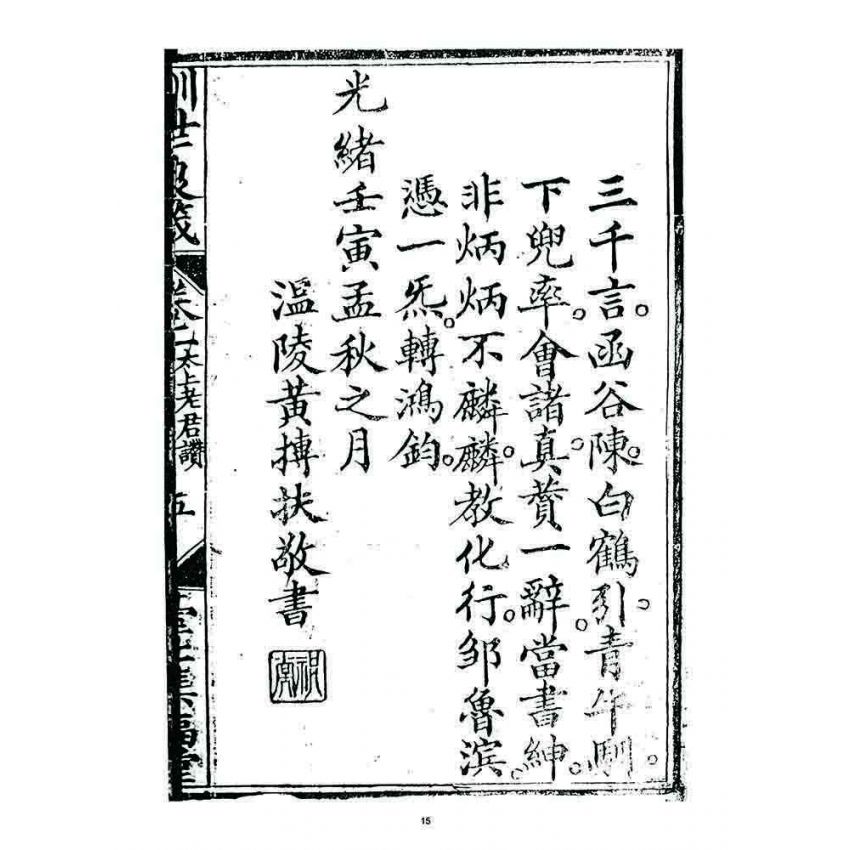 三千言。函谷陳。白鶴引。青牛馴。
下兜率。會諸真。贊一辭。當書紳。
非炳炳不麟麟。教化行。邹魯滨。
憑一炁。轉鴻鈞。
光緒壬寅孟秋之月
溫陵黃搏扶敬書
太上老君讚
五
集福堂
15